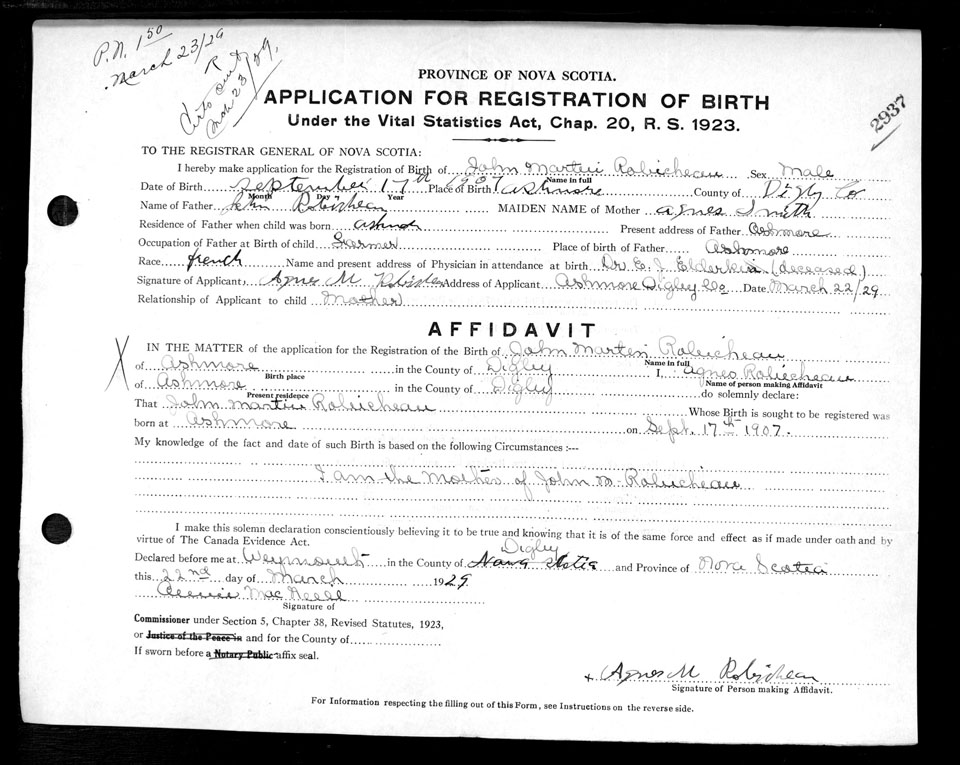 P.N. 1 50
March 23/29
R
Mch 23/29.
2937
PROVINCE OF NOVA SCOTIA.
APPLICATION FOR REGISTRATION OF BIRTH
Under the Vital Statistics Act, Chap. 20, R. S. 1923.
TO THE REGISTRAR GENERAL OF NOVA SCOTIA:
I hereby make application for the Registration of Birth of John Martin Robicheau Sex Male
Name in full
Date of Birth September 17th 1907 Place of Birth Ashmore County of Digby Co
Month Day Year
Name of Father John Robicheau MAIDEN NAME of Mother Agnes Smith
Residence of Father when child was born Ashmore Present address of Father Ashmore
Occupation of Father at Birth of child Farmer Place of birth of Father Ashmore
Race french Name and present address of Physician in attendance at birth Dr. E. J. Elderkin (deceased)
Signature of Applicant Agnes M Robicheau Address of Applicant Ashmore Digby Co Date March 22/29
Relationship of Applicant to child Mother
AFFIDAVIT
X
IN THE MATTER of the application for the Registration of the Birth of John Martin Robicheau
Name in full
of Ashmore in the County of Digby I, Agnes Robicheau
Birth place Name of person making Affidavit
of Ashmore in the County of Digby do solemnly declare:
Present residence
That John Martin Robicheau Whose Birth is sought to be registered was
born at Ashmore on Sept. 17th 1907.
My knowledge of the fact and date of such Birth is based on the following Circumstances :---
I am the Mother of John M. Robicheau
I make this solemn declaration conscientiously believing it to be true and knowing that it is of the same force and effect as if made under oath and by
virtue of The Canada Evidence Act.
Digby
Declared before me at Weymouth in the County of Nova Scotia and Province of Nova Scotia
this 22nd day of March 1929
Mac Neill
Signature of
Commissioner under Section 5, Chapter 38, Revised Statutes, 1923,
or Justice of the Peace in and for the County of
If sworn before a Notary Public affix seal.
x Agnes M Robicheau
Signature of Person making Affidavit.
For Information respecting the filling out of this Form, see Instructions on the reverse side.